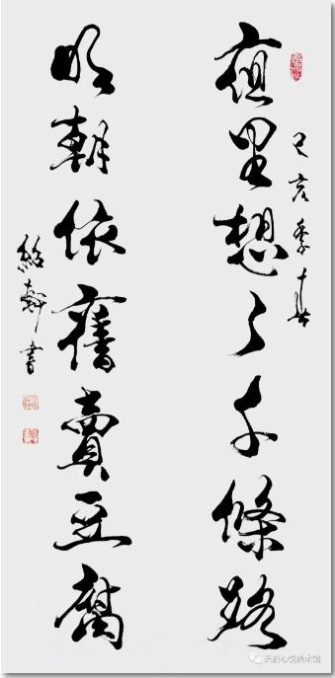 己亥季春
夜里想了千條路
明朝依舊賣豆腐
紹 書